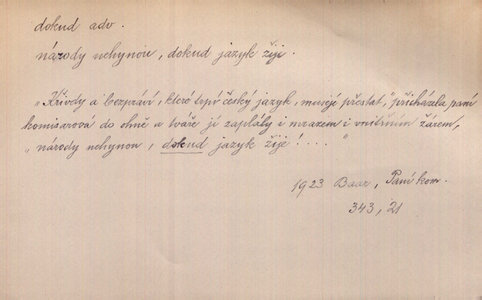 dokud adv.
národy nehynou, dokud jazyk žije.
„Křivdy a bezpráví, které tepú český jazyk, musejí přestat," přicházela paní
komisarová do ohně a tváře jí zaplály i mrazem i vnitřním žárem,
„národy nehynou, dokud jazyk žije! . . . "
1923 Baar, Paní kom.
343, 21